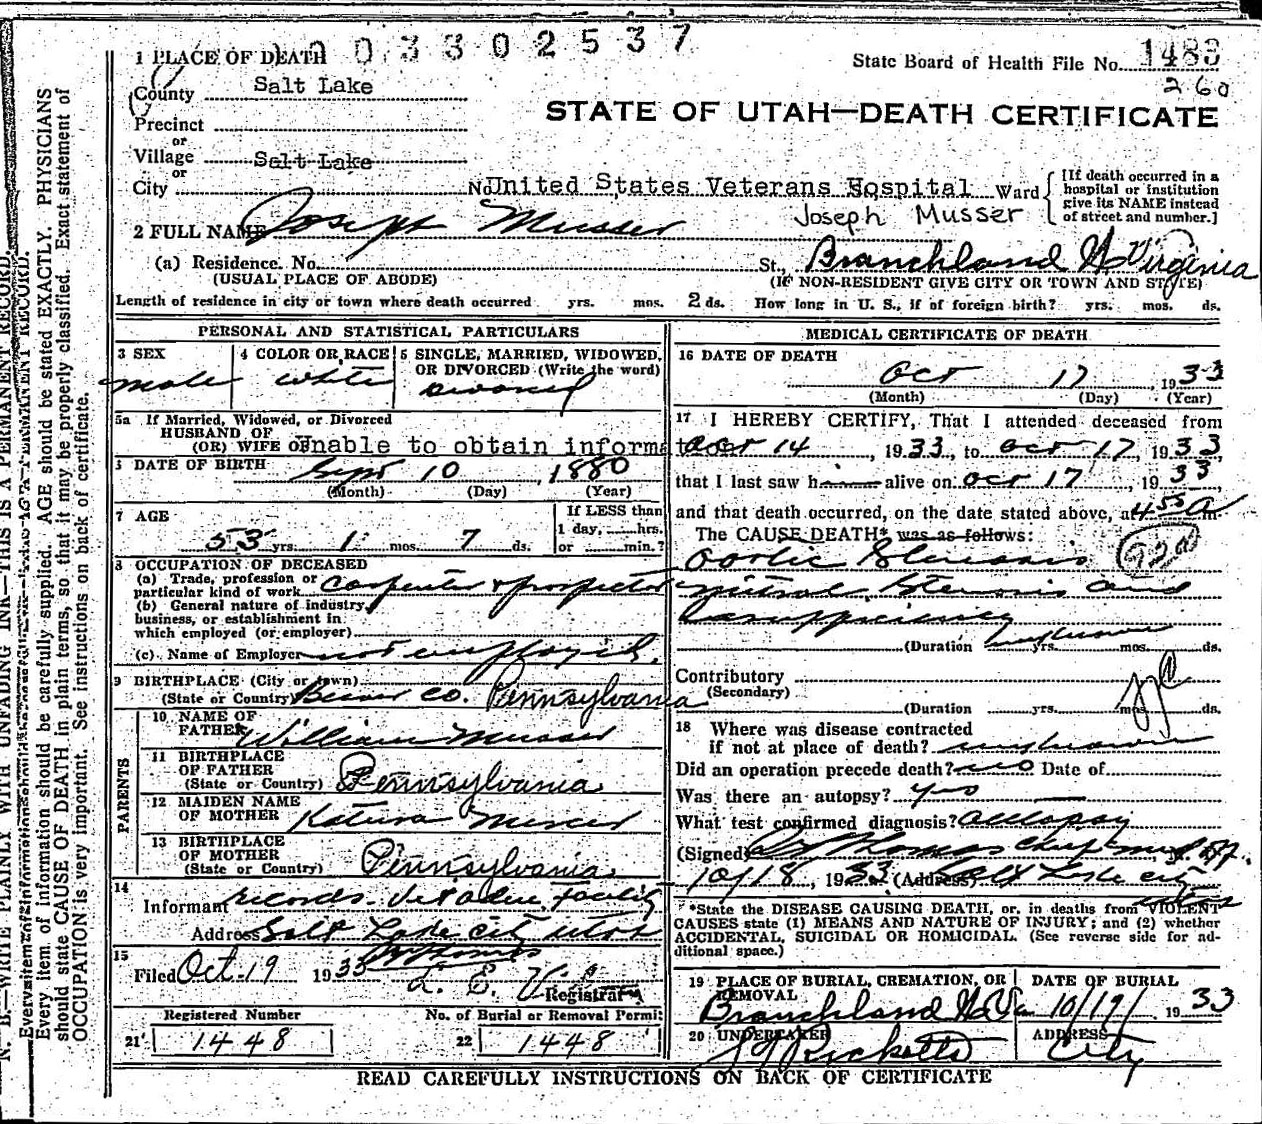 1 PLACE OF DEATH 0 0 3 3 0 2 5 3 7
State Board of Health File No. 1483
260
County Salt Lake
STATE OF UTAH—DEATH CERTIFICATE
Precinct
or
Village Salt Lake
or
City No. United States Veterans Hospital Ward
[If death occurred in a
hospital or institution
give its NAME instead
of street and number.]
2 FULL NAME Joseph Musser Joseph Musser
(a) Residence. No. St., Branchland W Virginia
(USUAL PLACE OF ABODE) (IF NON-RESIDENT GIVE CITY OR TOWN AND STATE)
Length of residence in city or town where death occurred yrs. mos. 2 ds. How long in U. S., if of foreign birth? yrs. mos. ds.
PERSONAL AND STATISTICAL PARTICULARS
3 SEX 4 COLOR OR RACE 5 SINGLE, MARRIED, WIDOWED,
OR DIVORCED (Write the word)
male white Divorced
5a If Married, Widowed, or Divorced
HUSBAND OF
(OR) WIFE OF Unable to obtain informa
DATE OF BIRTH Sept 10, 1880
(Month) (Day) (Year)
7 AGE If LESS than
1 day, hrs.
53 yrs. 1 mos. 7 ds. or min.?
8 OCCUPATION OF DECEASED
(a) Trade, profession or
particular kind of work carpenter & prospector
(b) General nature of industry,
business, or establishment in
which employed (or employer)
(c) Name of Employer not employed.
9 BIRTHPLACE (City or town)
(State or Country) Beaver Co. Pennsylvania
PARENTS
10 NAME OF
FATHER William Musser
11 BIRTHPLACE
OF FATHER
(State or Country) Pennsylvania
12 MAIDEN NAME
OF MOTHER Mercer
13 BIRTHPLACE
OF MOTHER
(State or Country) Pennsylvania
14
Informant records. Facility
Address Salt Lake City Utah
15
Filed Oct-19 1933 L. E. Registrar
Registered Number No. of Burial or Removal Permit
21 1448 22 1448
MEDICAL CERTIFICATE OF DEATH
16 DATE OF DEATH
Oct 17, 1933
(Month) (Day) (Year)
17 I HEREBY CERTIFY, That I attended deceased from
Oct 14, 1933, to Oct 17, 1933,
that I last saw h alive on Oct 17, 1933,
and that death occurred, on the date stated above, at 4:50 A m.
The CAUSE DEATH* was as follows:
aortic Stenosis 92a
mitral Stenosis and
insufficiency
(Duration unknown yrs. mos. ds.
Contributory
(Secondary)
(Duration yrs. mos. ds.
18 Where was disease contracted
if not at place of death? unknown
Did an operation precede death? no Date of
Was there an autopsy? yes
What test confirmed diagnosis? autopsy
(Signed) Thomas Chief med
10/18, 1933 (Address) Salt Lake City
Utah
*State the DISEASE CAUSING DEATH, or, in deaths from VIOLENT
CAUSES state (1) MEANS AND NATURE OF INJURY; and (2) whether
ACCIDENTAL, SUICIDAL OR HOMICIDAL. (See reverse side for ad-
ditional space.)
19 PLACE OF BURIAL, CREMATION, OR
REMOVAL DATE OF BURIAL
Branchland W Va 10/19/ 1933
20 UNDERTAKER ADDRESS
Ricketts City
READ CAREFULLY INSTRUCTIONS ON BACK OF CERTIFICATE
N. B.—WRITE PLAINLY WITH UNFADING INK—THIS IS A PERMANENT RECORD.
Every item of information should be carefully supplied. AGE should be stated EXACTLY. PHYSICIANS
should state CAUSE OF DEATH in plain terms, so that it may be properly classified. Exact statement of
OCCUPATION is very important. See instructions on back of certificate.